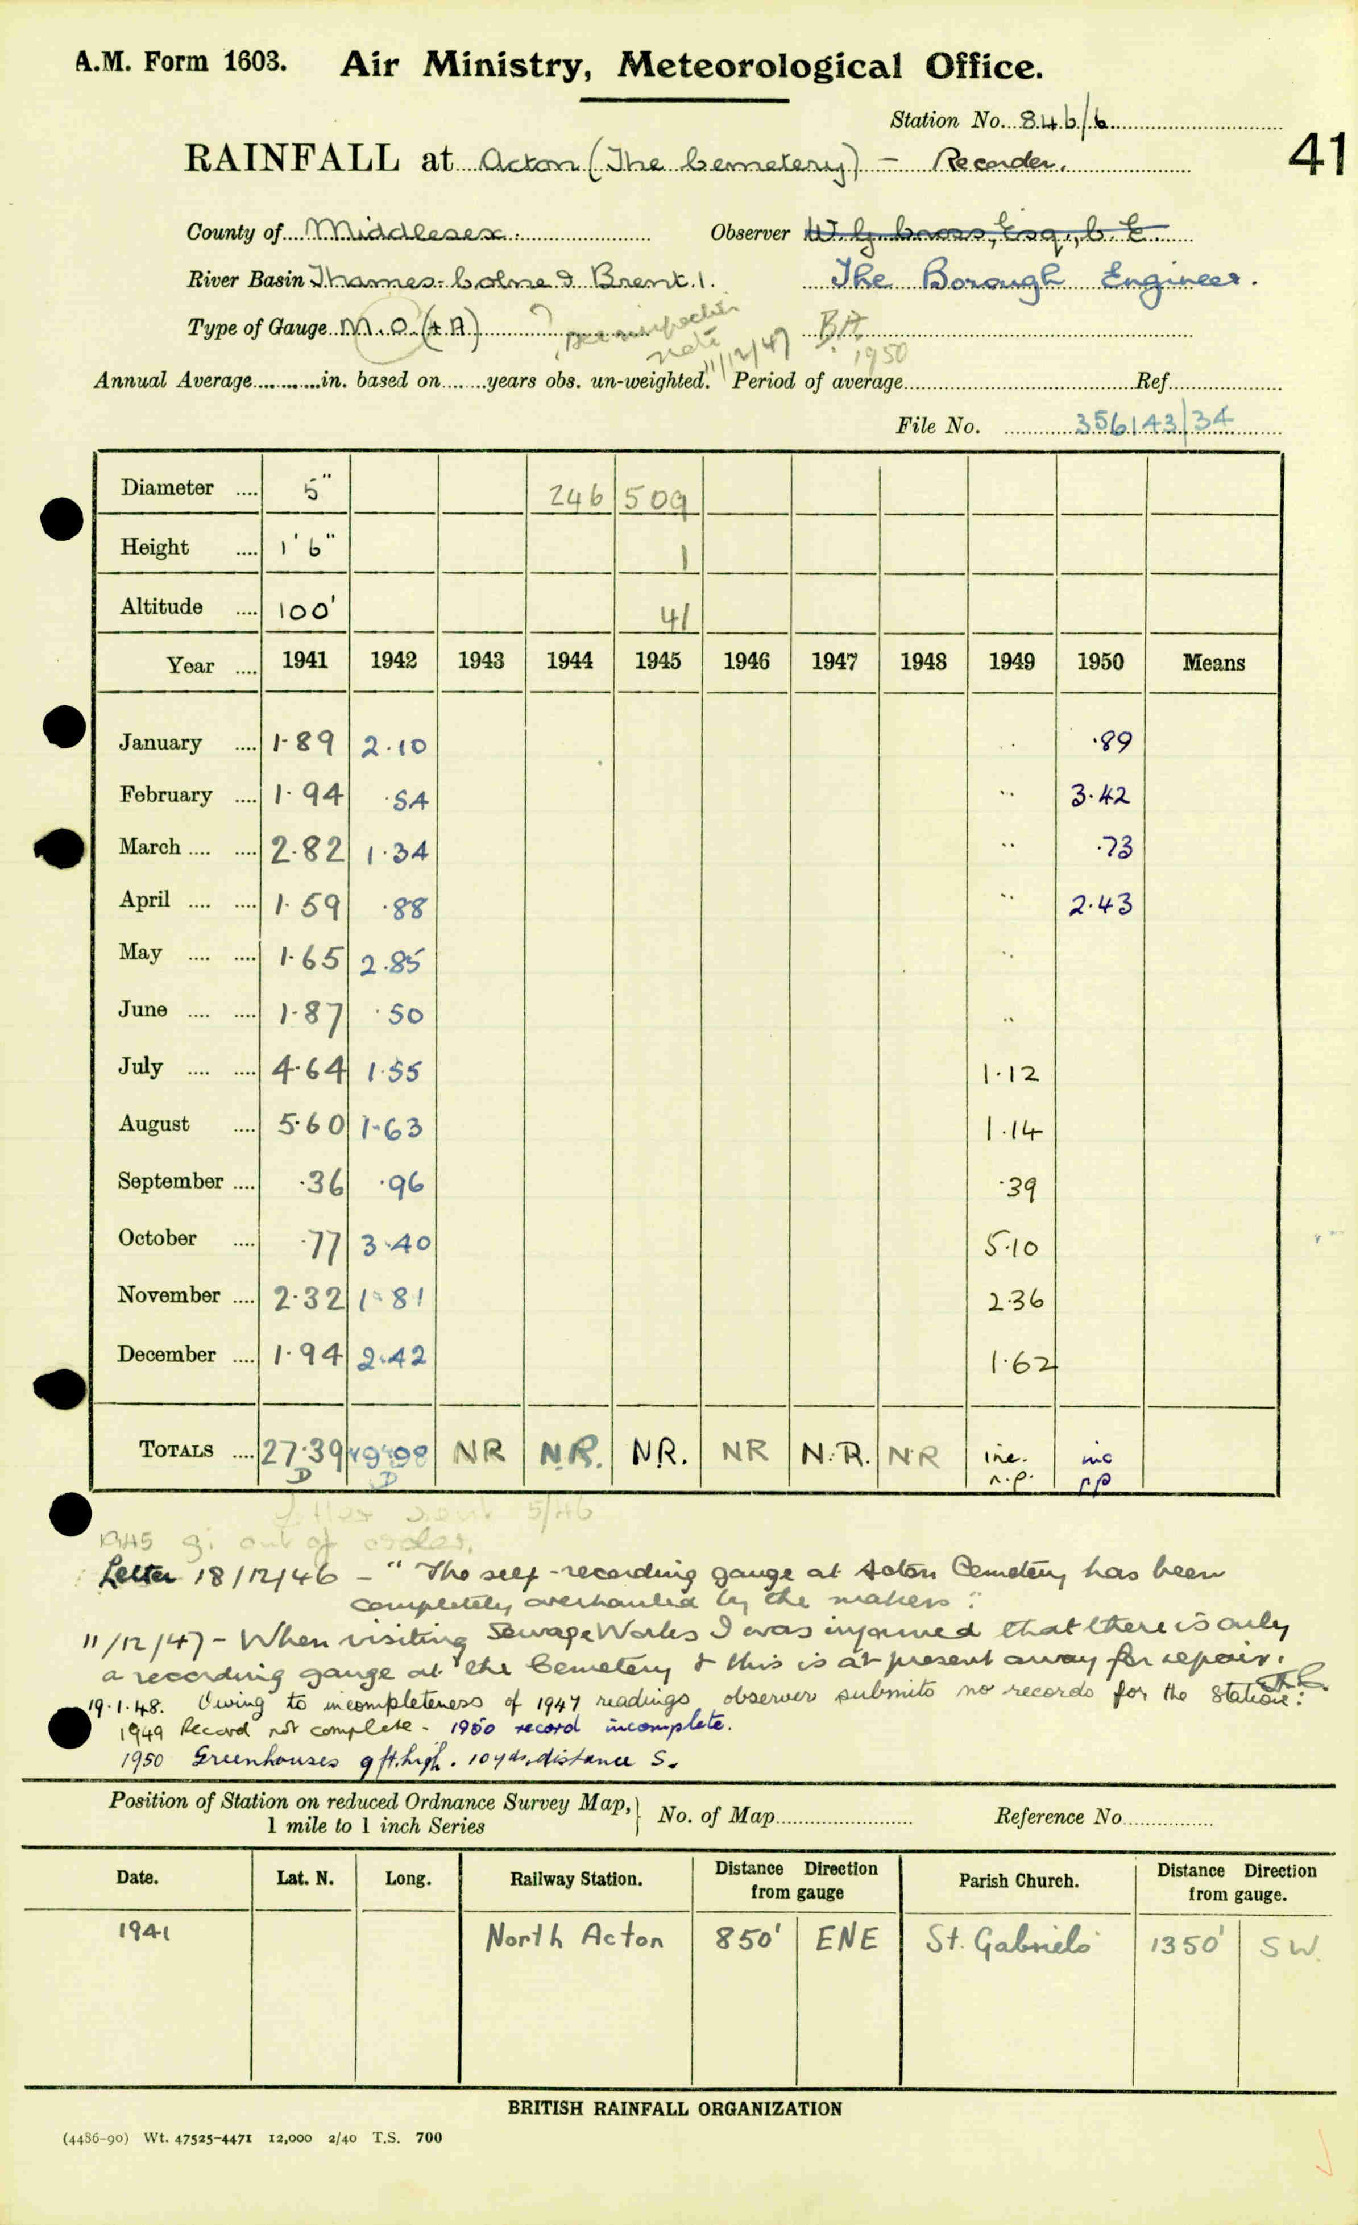 A.M. Form 1603. Air Ministry, Meteorological Office.
Station No. 846/6
41
RAINFALL at Acton (The Cemetery) - Recorder.
County of Middlesex. Observer W. G. Cross, Esq., C. E.
River Basin Thames-Colne & Brent. 1. The Borough Engineer.
Type of Gauge M.O. (+A) ? See inspection note 11/12/47 BA 1950
Annual Average in. based on years obs. un-weighted. Period of average Ref.
File No. 356143/34
Diameter .... 5" 246 509
Height .... 1'6" 1
Altitude .... 100' 41
Year .... 1941 1942 1943 1944 1945 1946 1947 1948 1949 1950 Means
January .... 1.89 2.10 .. .89
February .... 1.94 .54 .. 3.42
March .... .... 2.82 1.34 .. .73
April .... .... 1.59 .88 .. 2.43
May .... .... 1.65 2.85 ..
June .... .... 1.87 .50 ..
July .... .... 4.64 1.55 1.12
August .... 5.60 1.63 1.14
September .... .36 .96 .39
October .... .77 3.40 5.10
November .... 2.32 1.81 2.36
December .... 1.94 2.42 1.62
TOTALS .... 27.39 19.98 NR N.R. N.R. NR N.R. NR inc. inc
D D n.p. np
Letter sent 5/46
1945 g: out of order.
Letter 18/12/46 - "The self-recording gauge at Acton Cemetery has been
completely overhauled by the makers".
11/12/47 - When visiting Sewage Works I was informed that there is only
a recording gauge at the Cemetery & this is at present away for repair.
19.1.48. Owing to incompleteness of 1947 readings observer submits no records for the station.
1949 Record not complete - 1950 record incomplete.
1950 Greenhouses 9 ft. high. 10 yds. distance S.
Position of Station on reduced Ordnance Survey Map, 1 mile to 1 inch Series } No. of Map Reference No.
Date. Lat. N. Long. Railway Station. Distance Direction from gauge Parish Church. Distance Direction from gauge.
1941 North Acton 850' ENE St. Gabriels 1350' SW.
BRITISH RAINFALL ORGANIZATION
(4486-90) Wt. 47525-4471 12,000 2/40 T.S. 700